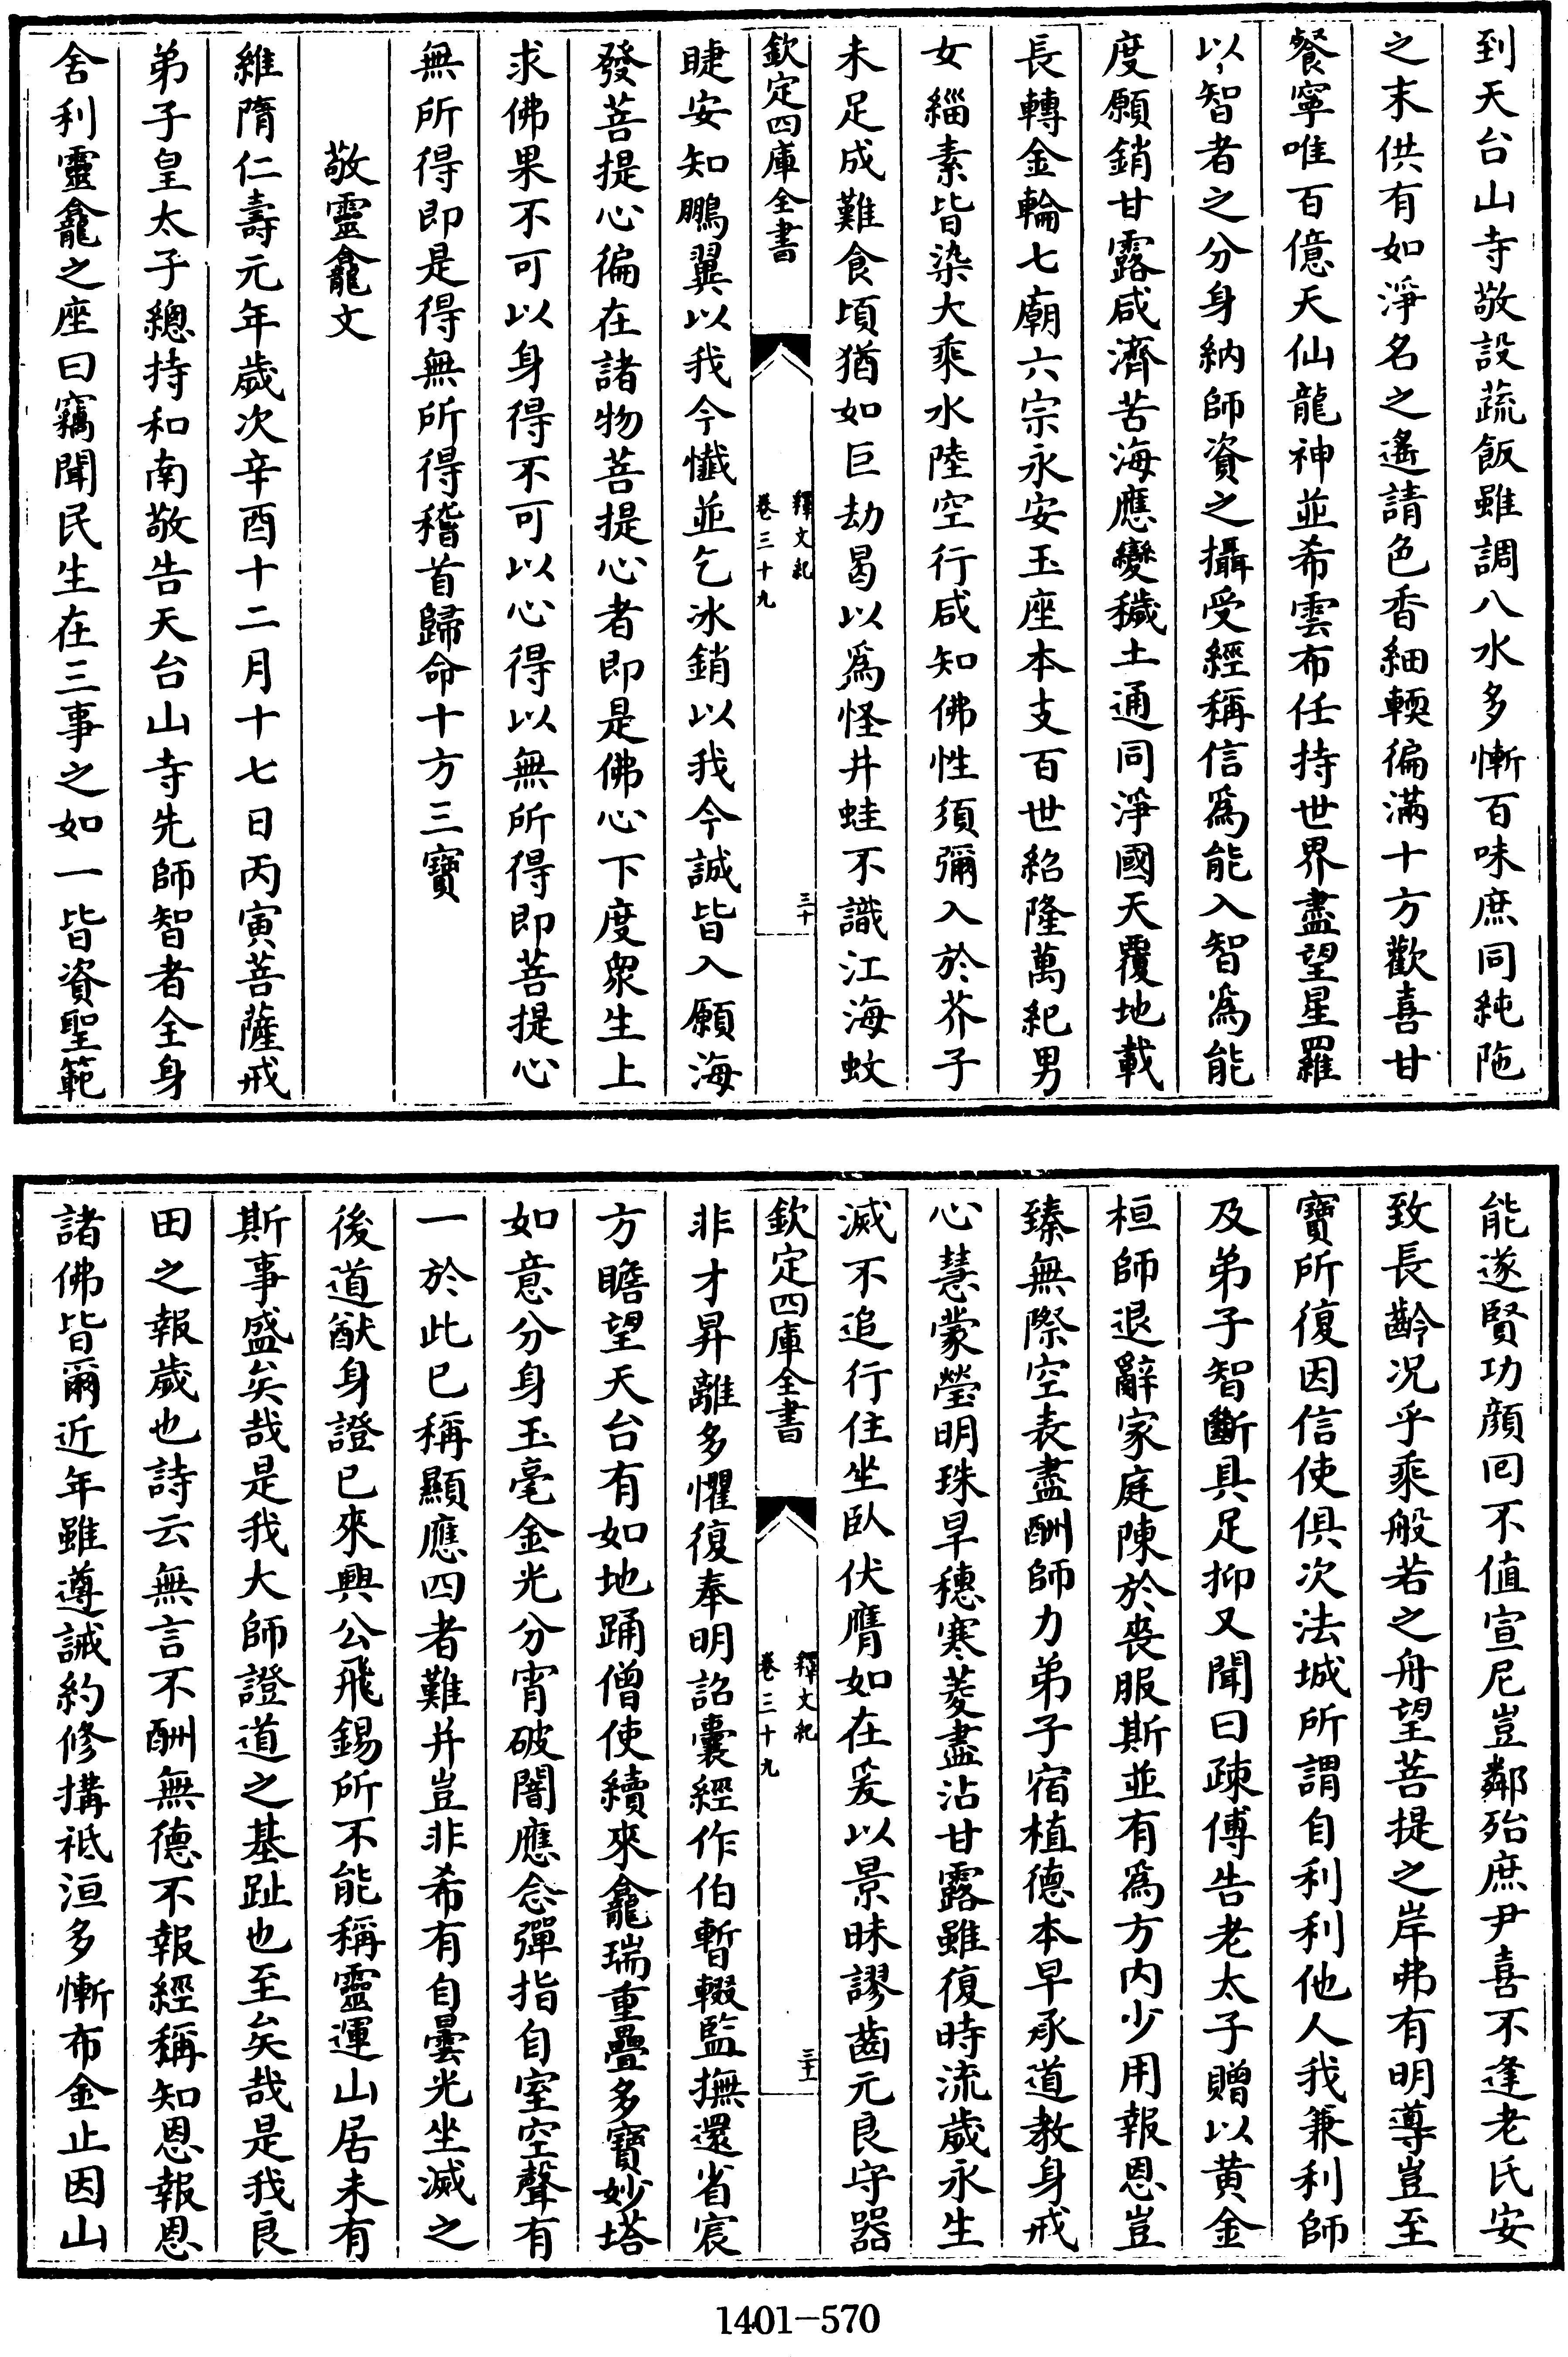 到天台山寺敬設蔬飯雖調八水多慚百味庶同純陁
之末供有如淨名之遙請色香細輭徧滿十方歡喜甘
餐寧唯百億天仙龍神並希雲布任持世界盡望星羅
以智者之分身納師資之攝受經稱信爲能入智爲能
度願銷甘露咸濟苦海應變穢土通同淨國天覆地載
長轉金輪七廟六宗永安玉座本支百世紹隆萬紀男
女緇素皆染大乘水陸空行咸知佛性須彌入於芥子
未足成難食頃猶如巨劫曷以爲怪井蛙不識江海蚊
欽定四庫全書
釋文紀
卷三十九
三十
睫安知鵬翼以我今懺並乞冰銷以我今誠皆入願海
發菩提心徧在諸物菩提心者即是佛心下度衆生上
求佛果不可以身得不可以心得以無所得即菩提心
無所得即是得無所得稽首歸命十方三寶
敬靈龕文
維隋仁壽元年歲次辛酉十二月十七日丙寅菩薩戒
弟子皇太子總持和南敬告天台山寺先師智者全身
舍利靈龕之座曰竊聞民生在三事之如一皆資聖範
能遂賢功顔回不值宣尼豈鄰殆庶尹喜不逢老氏安
致長齡况乎乘般若之舟望菩提之岸弗有明導豈至
寶所復因信使俱次法城所謂自利利他人我兼利師
及弟子智斷具足抑又聞曰疎傅告老太子贈以黄金
桓師退辭家庭陳於喪服斯並有爲方内少用報恩豈
臻無際空表盡酬師力弟子宿植德本早承道教身戒
心慧蒙瑩明珠早穗寒菱盡沾甘露雖復時流歲永生
滅不追行住坐臥伏膺如在爰以景昧謬齒元良守器
欽定四庫全書
釋文紀
卷三十九
三十一
非才昇離多懼復奉明詔囊經作伯暫輟監撫還省宸
方瞻望天台有如地踊僧使續來龕瑞重疊多寶妙塔
如意分身玉毫金光分宵破闇應念彈指自室空聲有
一於此已稱顯應四者難并豈非希有自曇光坐滅之
後道猷身證已來興公飛錫所不能稱靈運山居未有
斯事盛矣哉是我大師證道之基趾也至矣哉是我良
田之報歲也詩云無言不酬無德不報經稱知恩報恩
諸佛皆爾近年雖遵誡約修搆祇洹多慚布金止因山
1401-570